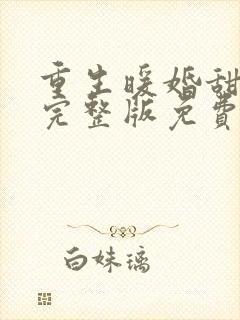 重生暖婚甜
完整版免費
白妹璃